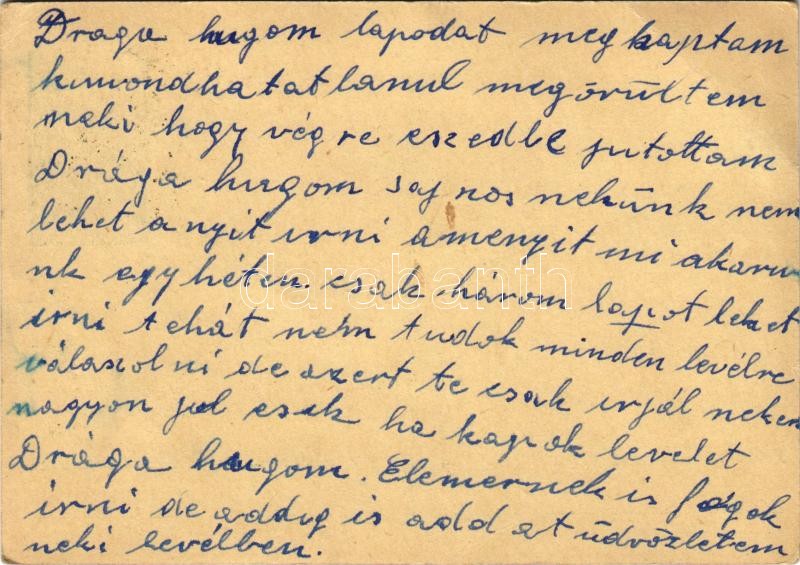 Draga hugom lapodat megkaptam
kimondhatatlanul megőrültem
neki hogy végre eszedbe jutottam
Drága hugom sajnos nekünk nem
lehet anyit irni amenyit mi akaru
nk egy héten. csak három lapot lehet
irni tehát nem tudok minden levélre
válaszolni de azert te csak irjál neken
nagyon jol esik ha kapok levelet
Drága hugom. Elemernek is fogok
irni de addig is add át üdvözletem
neki levélben.
darabanth